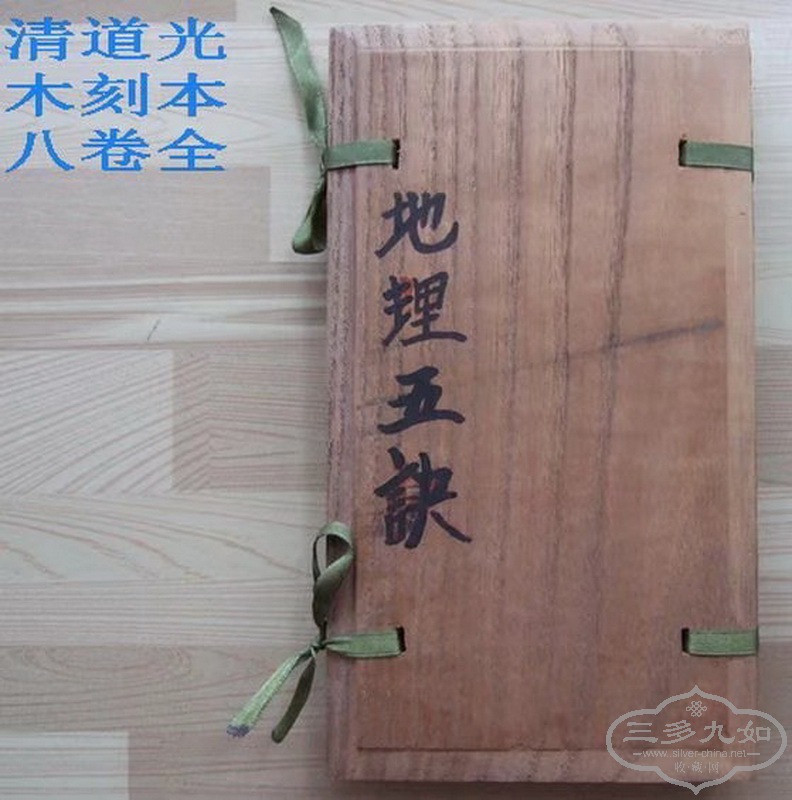 清道光
木刻本
八卷全
地理五訣
三多九如
www.silver-china.net
收·藏·网